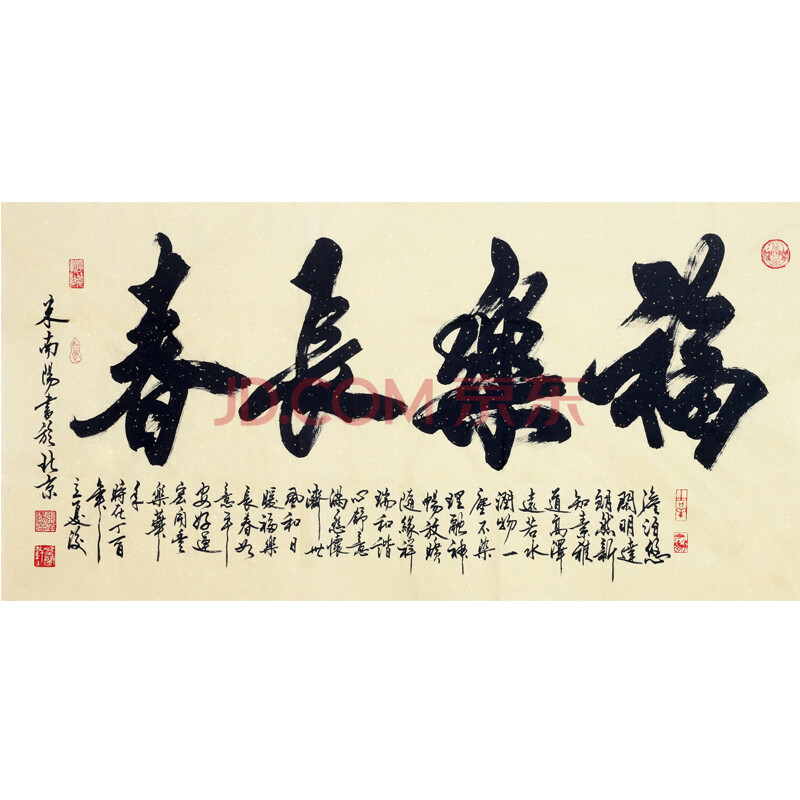 福樂長春
澹泊悠
闊明達
朗然新
知素雅
道高澤
遠若水
潤物一
塵不染
理融神
暢放懷
隨緣祥
瑞和諧
心舒意
滿慈懷
濟世
風和日
暖福樂
長春如
意平
安好運
宏開喜
樂華
年
時在丁酉
年
立夏後
米南陽書於北京
JD.COM 京东